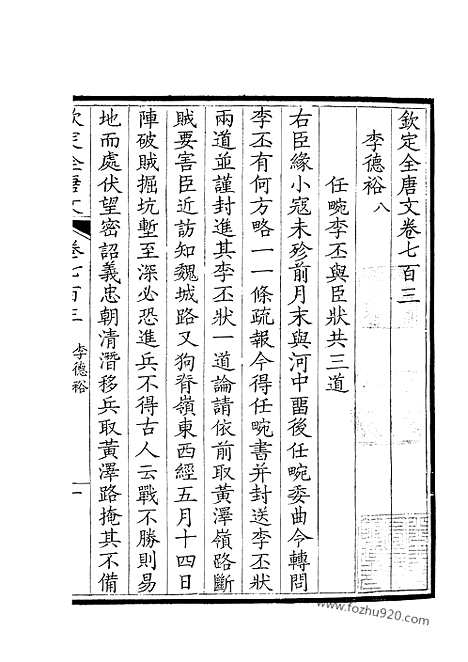 欽定全唐文卷七百三
李德裕八
任畹李丕與臣狀共三道
右臣緣小寇未殄前月末與河中留後任畹委曲令轉問
李丕有何方略一一條疏報今得任畹書并封送李丕狀
兩道並謹封進其李丕狀一道論請依前取黃澤嶺路斷
賊要害臣近訪知魏城路又狗脊嶺東西經五月十四日
陣破賊掘坑塹至深必恐進兵不得古人云戰不勝則易
地而處伏望密詔義忠朝清潛移兵取黃澤路掩其不備
欽定全唐文 卷七百三 李德裕 一
www.fozhu920.com